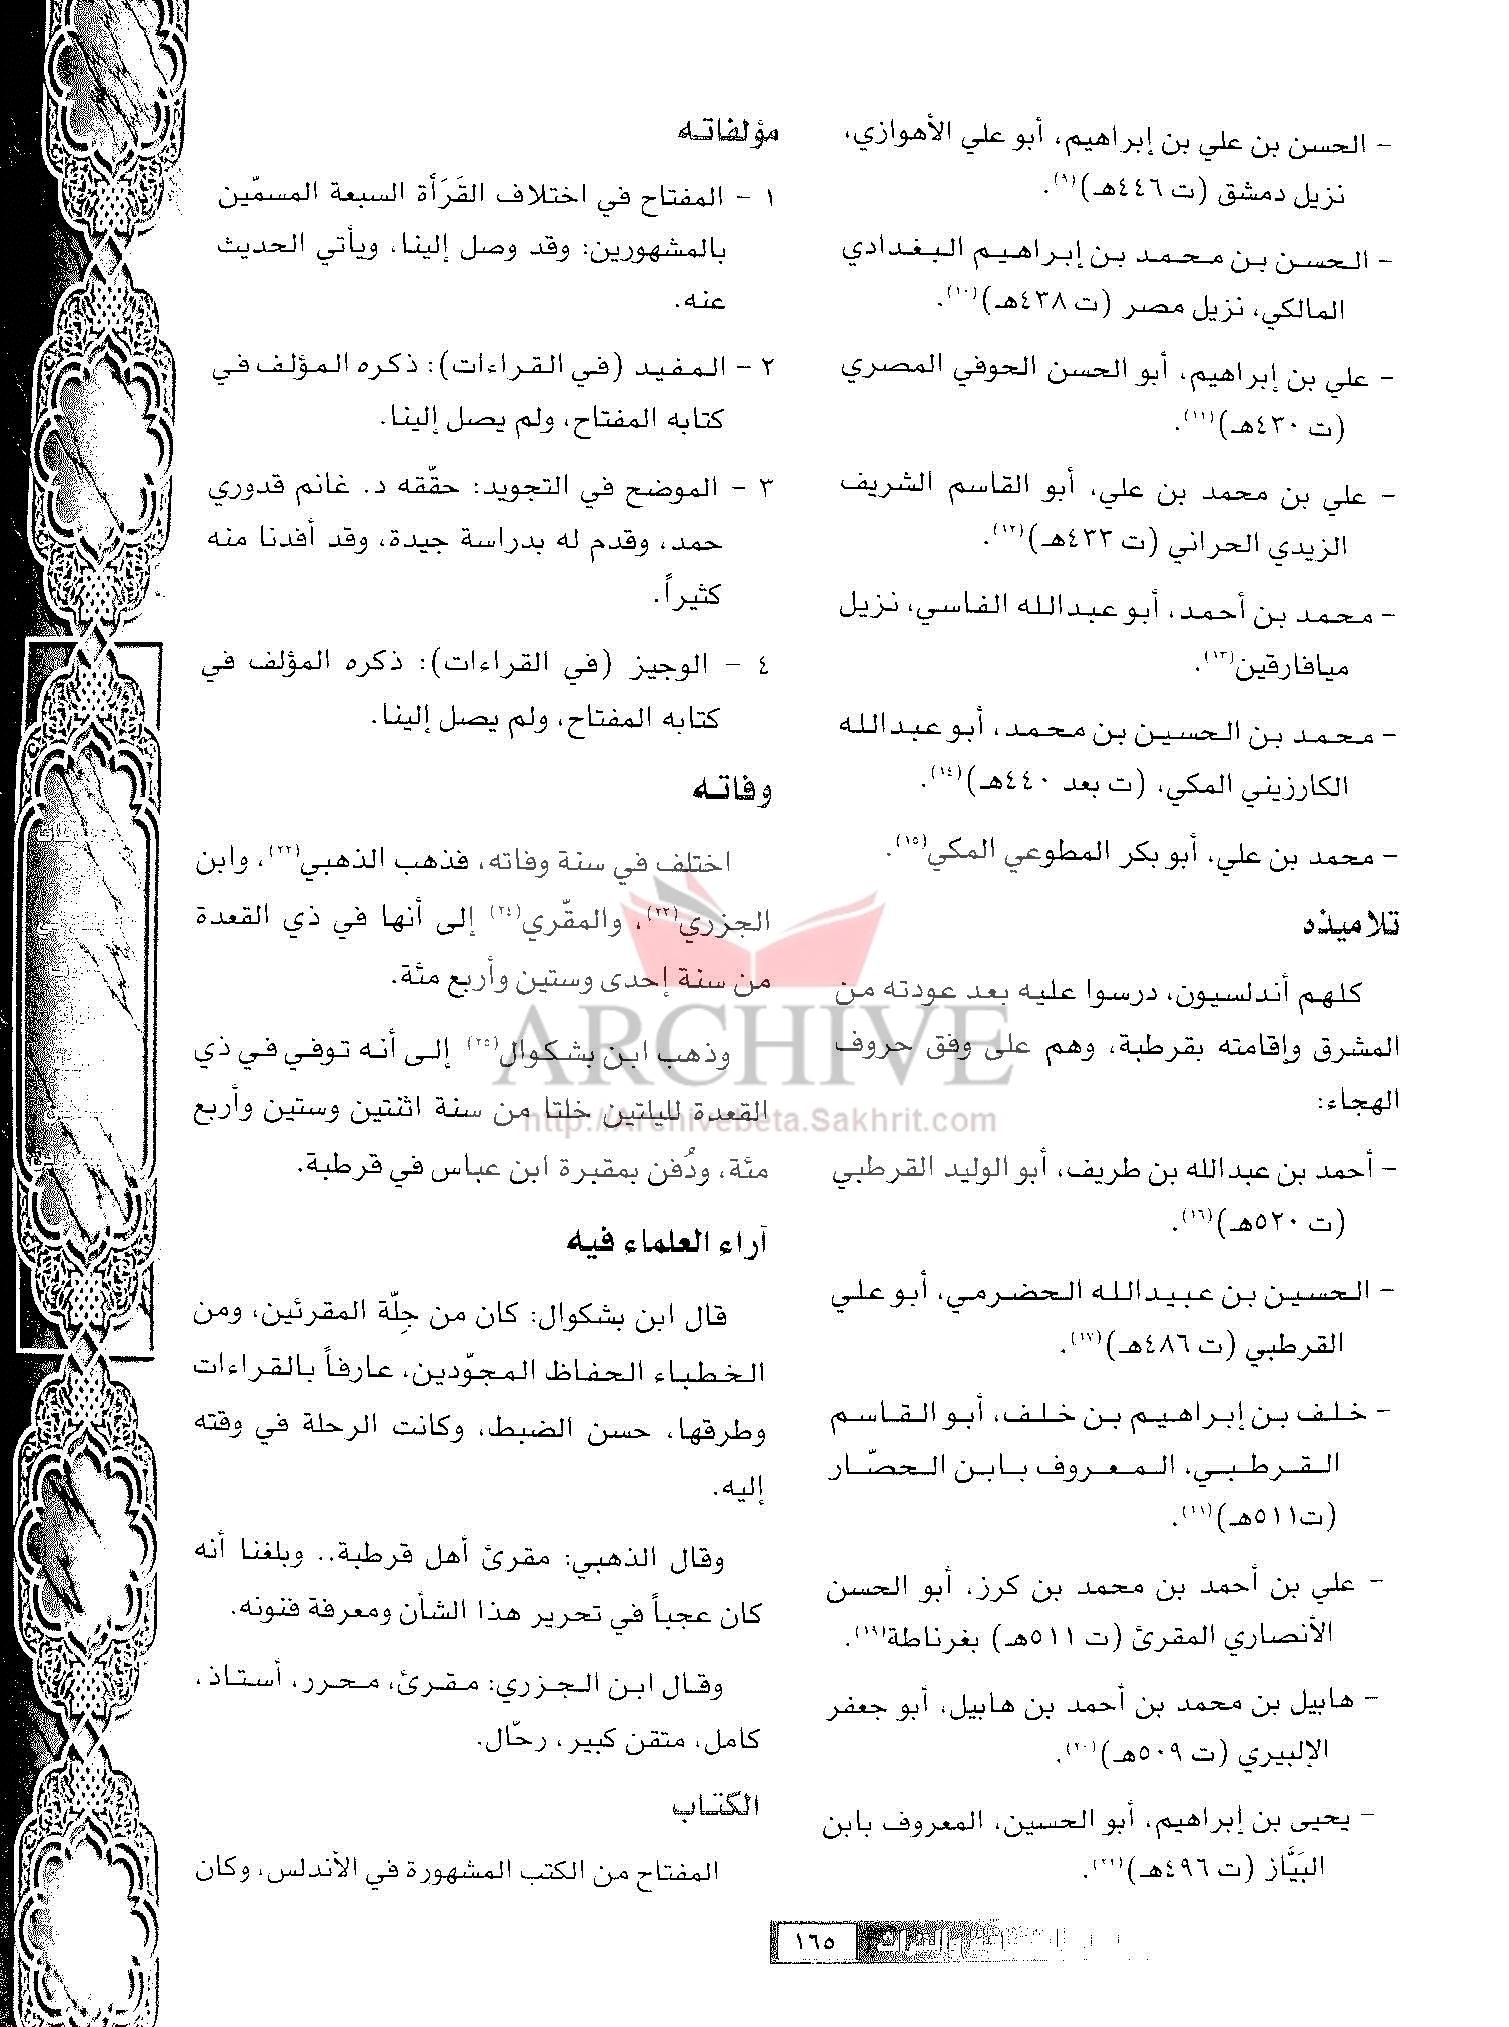 - الحسن بن علي بن إبراهيم، أبو علي الأهوازي،
نزيل دمشق (ت ٤٤٦هـ)(٩).
- الحسن بن محمد بن إبراهيم البغدادي
المالكي، نزيل مصر (ت ٤٣٨هـ)(١٠).
- علي بن إبراهيم، أبو الحسن الحوفي المصري
(ت ٤٣٠هـ)(١١).
- علي بن محمد بن علي، أبو القاسم الشريف
الزيدي الحراني (ت ٤٣٣هـ)(١٢).
- محمد بن أحمد، أبو عبدالله الفاسي، نزيل
ميافارقين(١٣).
- محمد بن الحسين بن محمد، أبو عبدالله
الكارزيني المكي، (ت بعد ٤٤٠هـ)(١٤).
- محمد بن علي، أبو بكر المطوعي المكي(١٥).
تلاميذه
كلهم أندلسيون، درسوا عليه بعد عودته من
المشرق وإقامته بقرطبة، وهم على وفق حروف
الهجاء:
- أحمد بن عبدالله بن طريف، أبو الوليد القرطبي
(ت ٥٢٠هـ)(١٦).
- الحسين بن عبيدالله الحضرمي، أبو علي
القرطبي (ت ٤٨٦هـ)(١٧).
- خلف بن إبراهيم بن خلف، أبو القاسم
القرطبي، المعروف بابن الحصّار
(ت٥١١هـ)(١٨).
- علي بن أحمد بن محمد بن كرز، أبو الحسن
الأنصاري المقرئ (ت ٥١١هـ) بغرناطة(١٩).
- هابيل بن محمد بن أحمد بن هابيل، أبو جعفر
الإلبيري (ت ٥٠٩هـ)(٢٠).
- يحيى بن إبراهيم، أبو الحسين، المعروف بابن
البَيَّاز (ت ٤٩٦هـ)(٢١).
مؤلفاته
١ - المفتاح في اختلاف القَرَأة السبعة المسمّين
بالمشهورين: وقد وصل إلينا، ويأتي الحديث
عنه.
٢ - المفيد (في القراءات): ذكره المؤلف في
كتابه المفتاح، ولم يصل إلينا.
٣ - الموضح في التجويد: حقّقه د. غانم قدوري
حمد، وقدم له بدراسة جيدة، وقد أفدنا منه
كثيراً.
٤ - الوجيز (في القراءات): ذكره المؤلف في
كتابه المفتاح، ولم يصل إلينا.
وفاته
اختلف في سنة وفاته، فذهب الذهبي(٢٢)، وابن
الجزري(٢٣)، والمقّري(٢٤) إلى أنها في ذي القعدة
من سنة إحدى وستين وأربع مئة.
وذهب ابن بشكوال(٢٥) إلى أنه توفي في ذي
القعدة لليلتين خلتا من سنة اثنتين وستين وأربع
مئة، ودُفن بمقبرة ابن عباس في قرطبة.
آراء العلماء فيه
قال ابن بشكوال: كان من جِلّة المقرئين، ومن
الخطباء الحفاظ المجوّدين، عارفاً بالقراءات
وطرقها، حسن الضبط، وكانت الرحلة في وقته
إليه.
وقال الذهبي: مقرئ أهل قرطبة.. وبلغنا أنه
كان عجباً في تحرير هذا الشأن ومعرفة فنونه.
وقال ابن الجزري: مقرئ، محرر، أستاذ،
كامل، متقن كبير، رحّال.
الكتاب
المفتاح من الكتب المشهورة في الأندلس، وكان
ARCHIVE
http://Archivebeta.Sakhrit.com
١٦٥